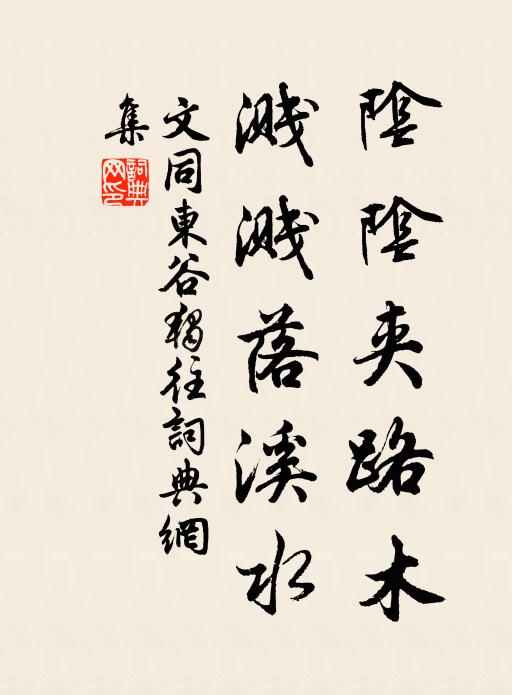 陰陰夾路木
濺濺落溪水
文同東谷獨往詞典網
集
詞典網印